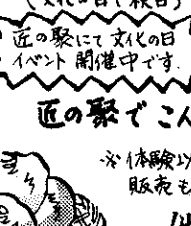 (文化の日で祝日)
匠の聚にて文化の日
イベント開催中です.
匠の聚でこん
※体験以
販売も